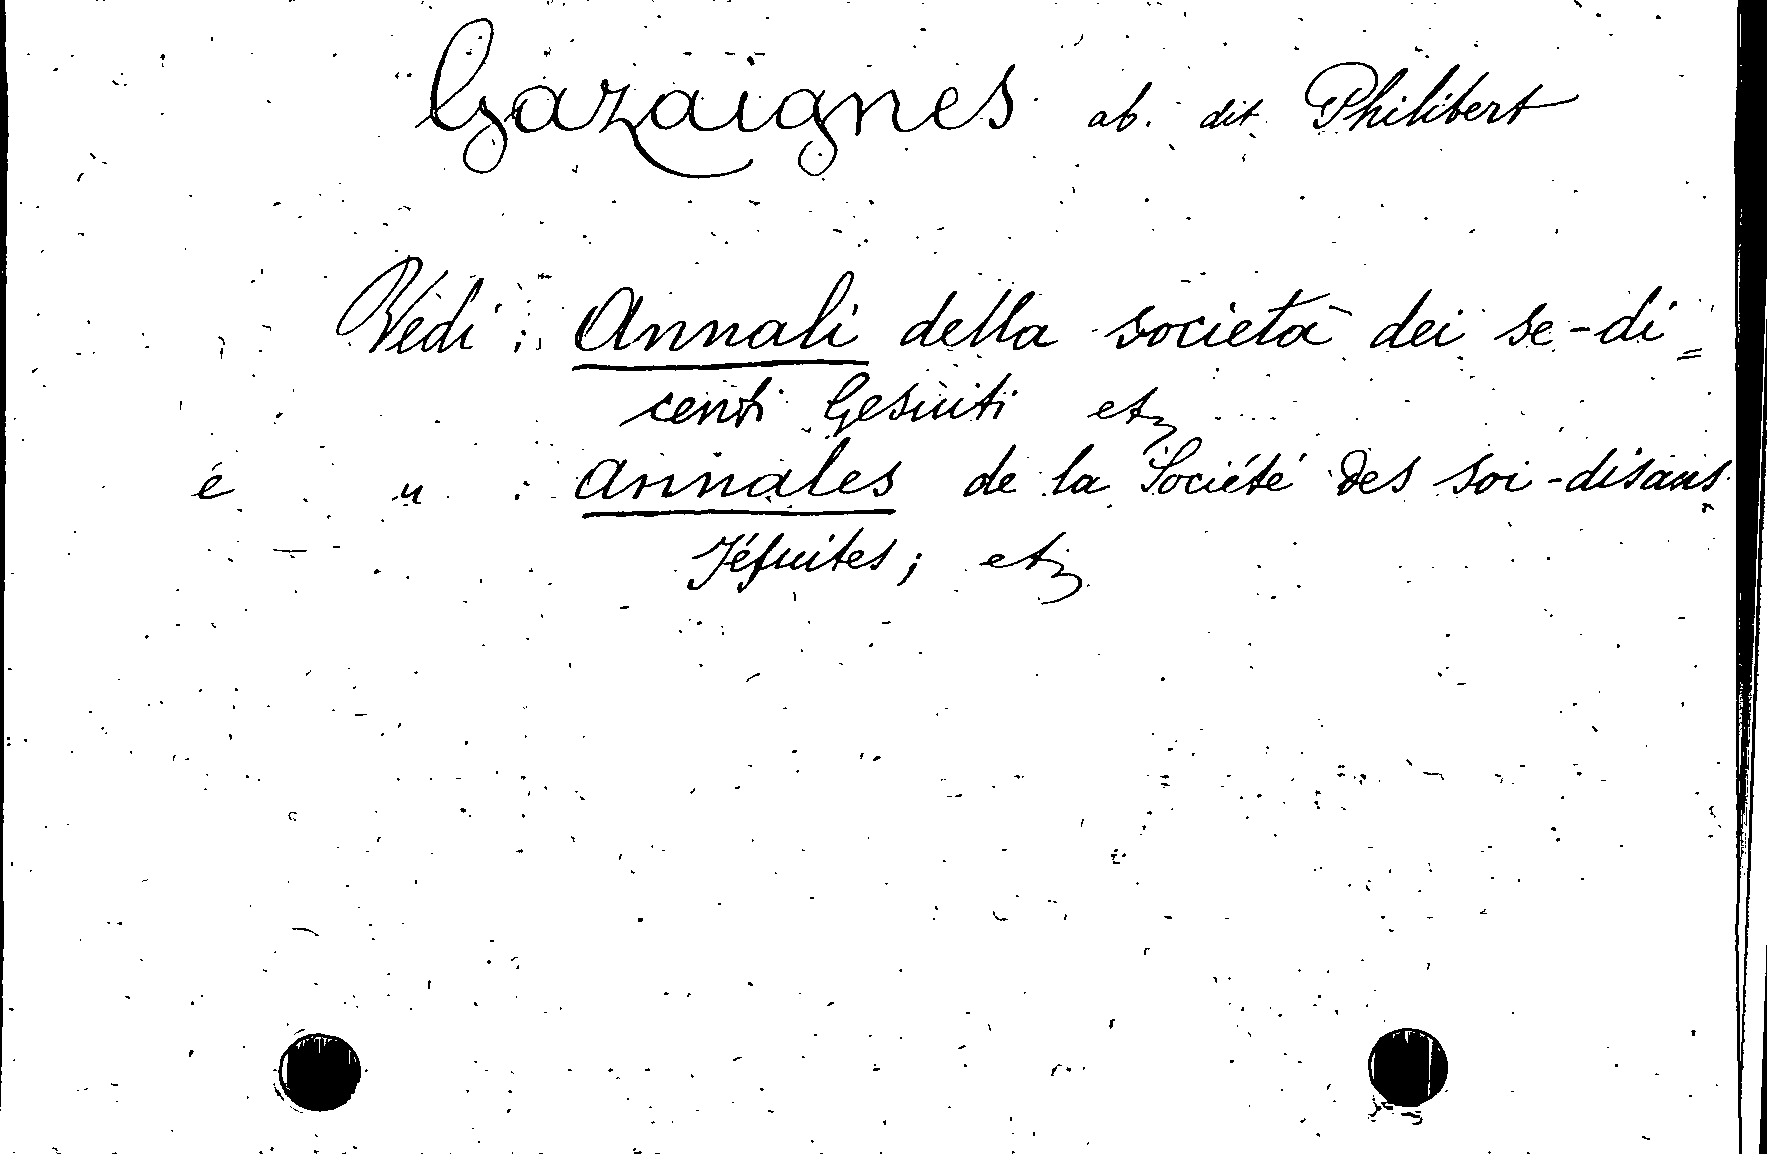 Gazaignes ab. dit Philibert
Vedi : Annali della società dei se-di=
centi Gesuiti etz
e " : Annales de la Société des soi-disans
Jésuites ; etz